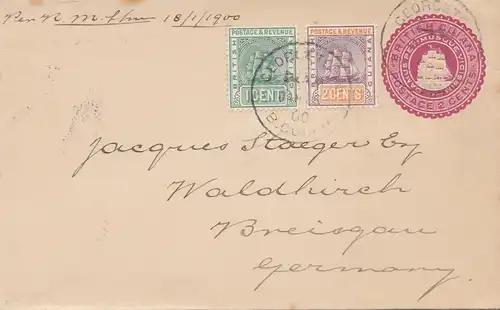 Per R. M. 18/1/1900
POSTAGE & REVENUE
BRITISH GUIANA
1 CENT
POSTAGE & REVENUE
BRITISH GUIANA
2 CENTS
BRITISH GUIANA
POSTAGE 2 CENTS
Jacques Staeger Esq
Waldkirch
Breisgau
Germany.